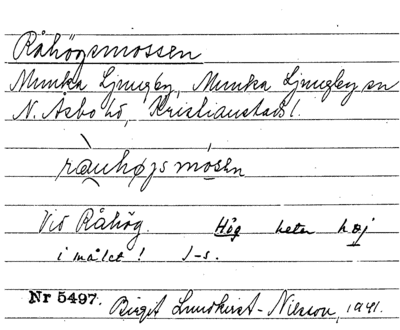 Råhögsmossen
Munka Ljungby, Munka Ljungby sn
N. Åsbo hd, Kristianstads l.
ràuhøgs mósen
Vid Råhög. Hög heter hœj
i målet! J-s.
Nr 5497. Birgit Lundkvist-Nilsson, 1941.